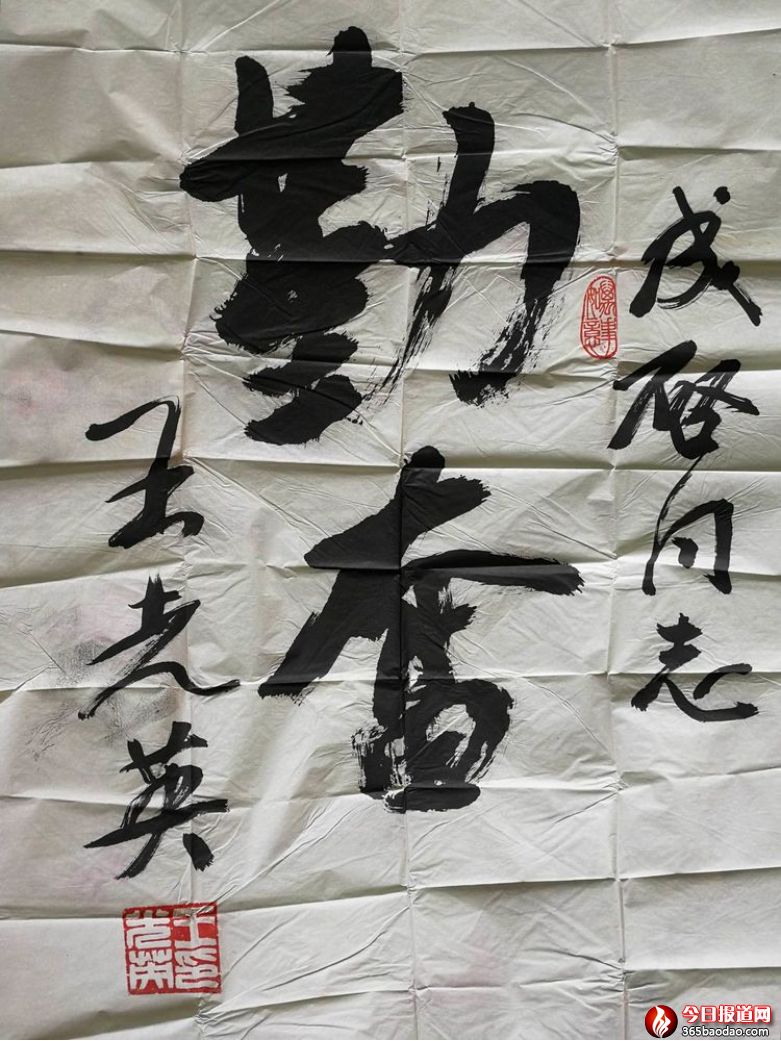 成啓同志
勤奮
王光英
王印
光英
今日报道网
365baodao.com